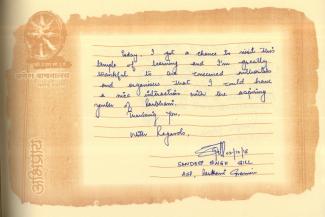 ग्रामीण वाचनालय
अभिप्राय
Today, I got a chance to visit this
temple of learning and I'm greatly
thankful to all concerned authorities
and organisers that I could have
a nice interaction with the aspiring
youth of Parbhani.
Thanking you,
With Regards.
SANDEEP SINGH GILL
ASP, Parbhani Gramin